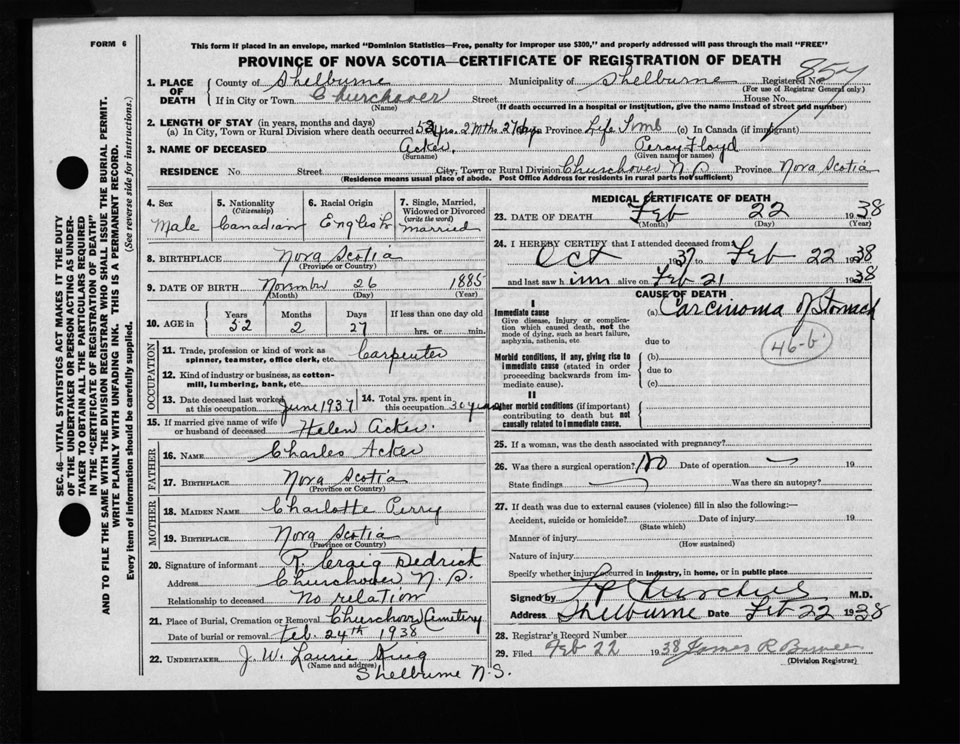 FORM 6
This form if placed in an envelope, marked "Dominion Statistics—Free, penalty for improper use $300," and properly addressed will pass through the mail "FREE"
PROVINCE OF NOVA SCOTIA—CERTIFICATE OF REGISTRATION OF DEATH
1. PLACE OF DEATH County of Shelburne Municipality of Shelburne Registered No. 857
(For use of Registrar General only)
If in City or Town Churchover Street House No.
(Name) (If death occurred in a hospital or institution, give the name instead of street and number)
2. LENGTH OF STAY (in years, months and days)
(a) In City, Town or Rural Division where death occurred 52 yrs. 2 Mths. 27 dys (b) In Province Life Time (c) In Canada (if immigrant)
3. NAME OF DECEASED Acker, Percy Floyd
(Surname) (Given name or names)
RESIDENCE No. Street City, Town or Rural Division Churchover N.S. Province Nova Scotia
(Residence means usual place of abode. Post Office Address for residents in rural parts not sufficient)
4. Sex Male
5. Nationality (Citizenship) Canadian
6. Racial Origin English
7. Single, Married, Widowed or Divorced (write the word) Married
8. BIRTHPLACE Nova Scotia
(Province or Country)
9. DATE OF BIRTH November 26 1885
(Month) (Day) (Year)
10. AGE in Years Months Days If less than one day old
52 2 27 hrs. or min.
OCCUPATION
11. Trade, profession or kind of work as spinner, teamster, office clerk, etc. Carpenter
12. Kind of industry or business, as cotton-mill, lumbering, bank, etc.
13. Date deceased last worked at this occupation June 1937
14. Total yrs. spent in this occupation 30 years
15. If married give name of wife or husband of deceased Helen Acker.
FATHER
16. NAME Charles Acker
17. BIRTHPLACE Nova Scotia
(Province or Country)
MOTHER
18. MAIDEN NAME Charlotte Perry
19. BIRTHPLACE Nova Scotia
(Province or Country)
20. Signature of informant R. Craig Dedrick
Address Churchover N.S.
Relationship to deceased No relation
21. Place of Burial, Cremation or Removal Churchover Cemetery
Date of burial or removal Feb. 24th 1938
22. UNDERTAKER J. W. Laurie King
(Name and address)
Shelburne N.S.
MEDICAL CERTIFICATE OF DEATH
23. DATE OF DEATH Feb 22 1938
(Month) (Day) (Year)
24. I HEREBY CERTIFY that I attended deceased from
Oct 1937 to Feb 22 1938
and last saw him alive on Feb 21 1938
CAUSE OF DEATH
I
Immediate cause
Give disease, injury or complication which caused death, not the mode of dying, such as heart failure, asphyxia, asthenia, etc
(a) Carcinoma of Stomach
due to
46-b
Morbid conditions, if any, giving rise to immediate cause (stated in order proceeding backwards from immediate cause).
(b)
due to
(c)
II
Other morbid conditions (if important) contributing to death but not causally related to immediate cause.
25. If a woman, was the death associated with pregnancy?
26. Was there a surgical operation? No Date of operation 19
State findings Was there an autopsy?
27. If death was due to external causes (violence) fill in also the following:—
Accident, suicide or homicide? Date of injury 19
(State which)
Manner of injury
(How sustained)
Nature of injury
Specify whether injury occurred in industry, in home, or in public place
Signed by Churchill M.D.
Address Shelburne Date Feb 22 1938
28. Registrar's Record Number
29. Filed Feb 22 1938 James R
(Division Registrar)
SEC. 46—VITAL STATISTICS ACT MAKES IT THE DUTY
OF THE UNDERTAKER OR PERSON ACTING AS UNDER-
TAKER TO OBTAIN ALL THE PARTICULARS REQUIRED
IN THE "CERTIFICATE OF REGISTRATION OF DEATH"
AND TO FILE THE SAME WITH THE DIVISION REGISTRAR WHO SHALL ISSUE THE BURIAL PERMIT.
WRITE PLAINLY WITH UNFADING INK. THIS IS A PERMANENT RECORD.
Every item of information should be carefully supplied. (See reverse side for instructions.)